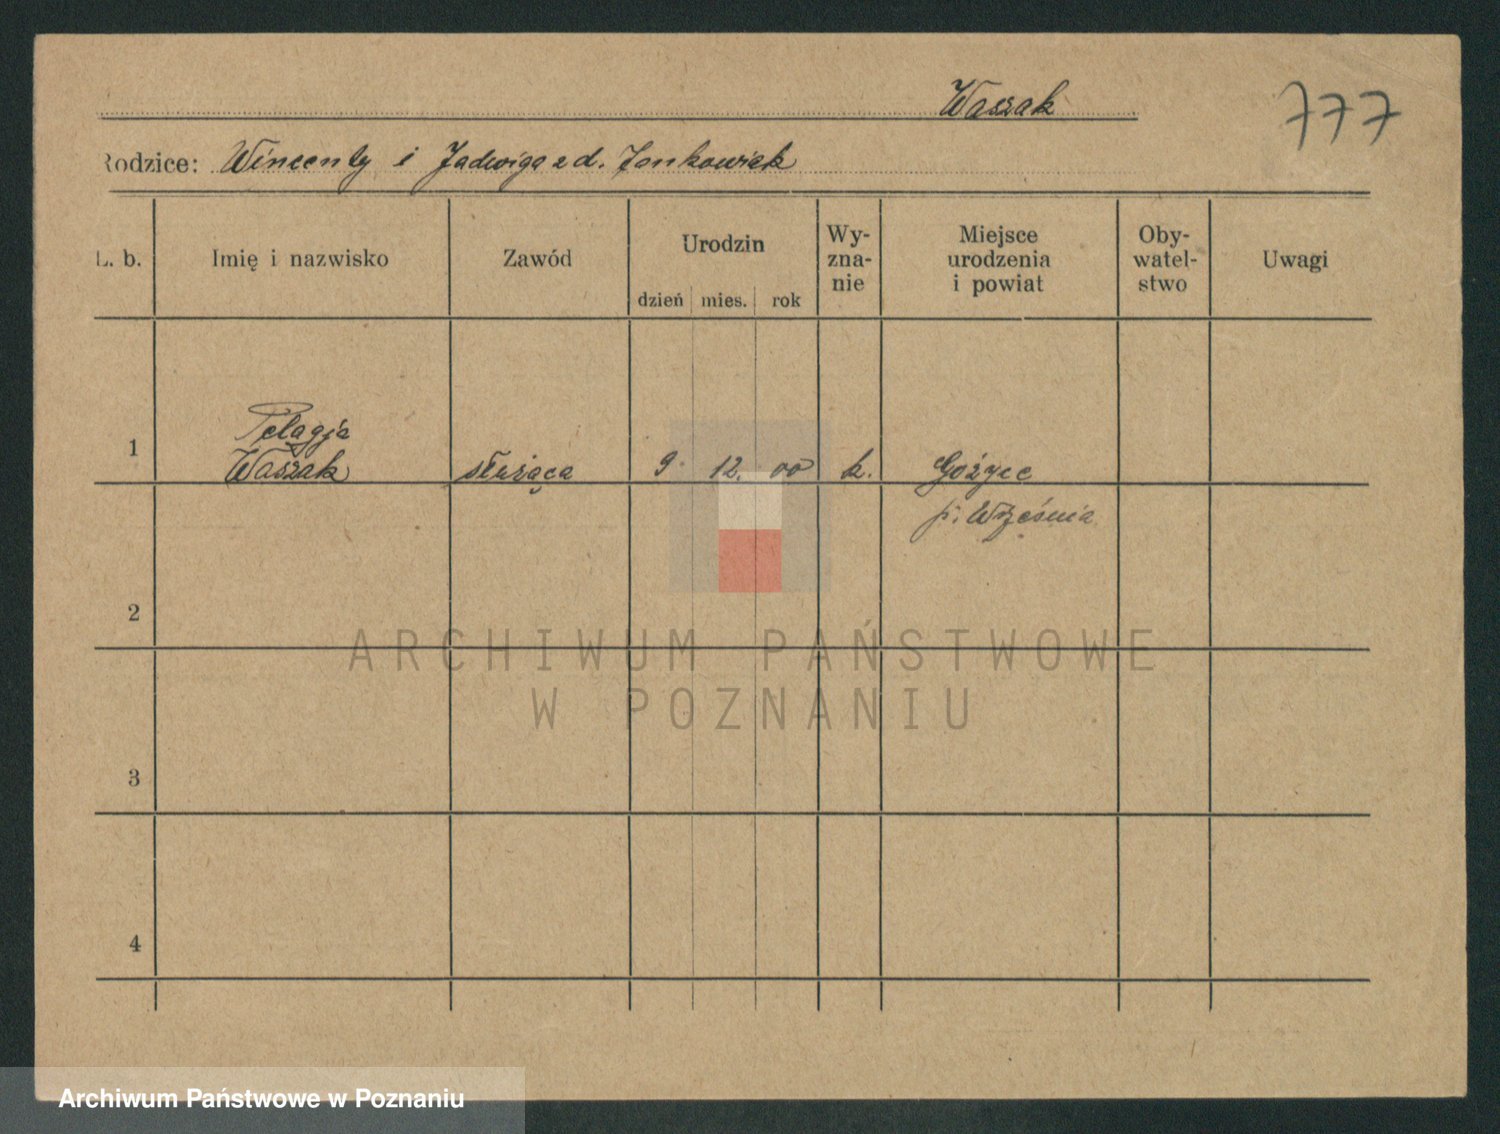 Waszak
777
Rodzice: Wincenty i Jadwiga z d. Jankowiak
L. b.
Imię i nazwisko
Zawód
Urodzin
dzień mies. rok
Wy-
zna-
nie
Miejsce
urodzenia
i powiat
Oby-
watel-
stwo
Uwagi
1
Pelagja
Waszak
służąca
9. 12. 00
k.
p. Września
2
ARCHIWUM PAŃSTWOWE
W POZNANIU
3
4
Archiwum Państwowe w Poznaniu